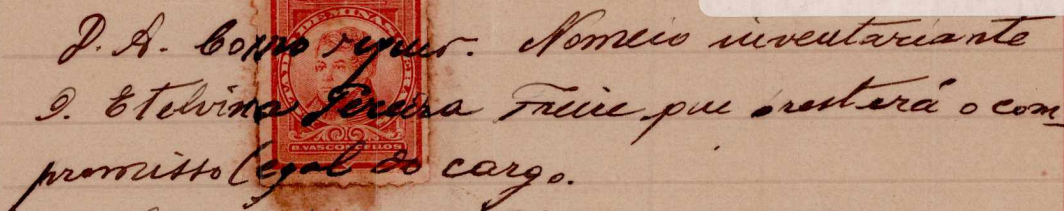 D. A. Como requer. Nomeio inventariante
D. Etelvina Pereira Freire que prestará o com_
promisso legal do cargo.
B. VASCONCELLOS